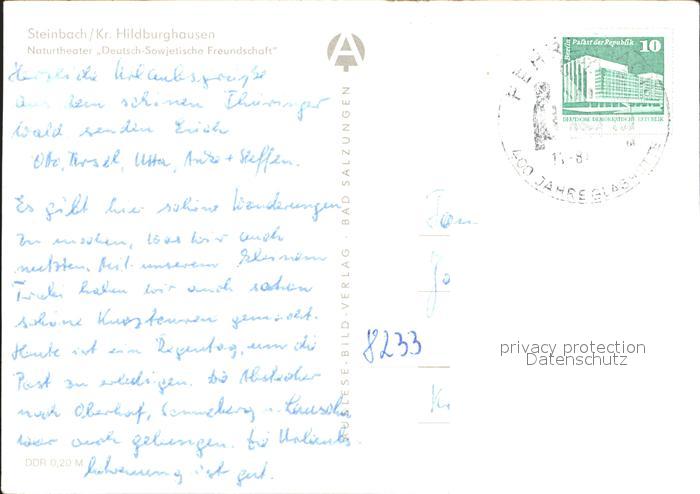 Steinbach/Kr. Hildburghausen
Naturtheater „Deutsch-Sowjetische Freundschaft“
Herzliche Urlaubsgrüße
aus dem schönen Thüringer
Wald senden Euch
Otto, Ursel, Utta, Anke + Steffen.
Es gibt hier schöne Wanderungen
zu machen, was wir auch
nutzten. Mit unserem kleinen
haben wir auch schon
schöne gemacht.
Heute ist ein Regentag, um die
Post zu erledigen. Die Abstecher
nach Oberhof, Sonneberg u. Lauscha
war auch gelungen. Die Urlaubs-
betreuung ist gut.
DDR 0,20 M
AUSLESE-BILD-VERLAG · BAD SALZUNGEN
A
Berlin Palast der Republik 10
DEUTSCHE DEMOKRATISCHE REPUBLIK
400 JAHRE GLASHÜTTE
Fam
8233
privacy protection
Datenschutz